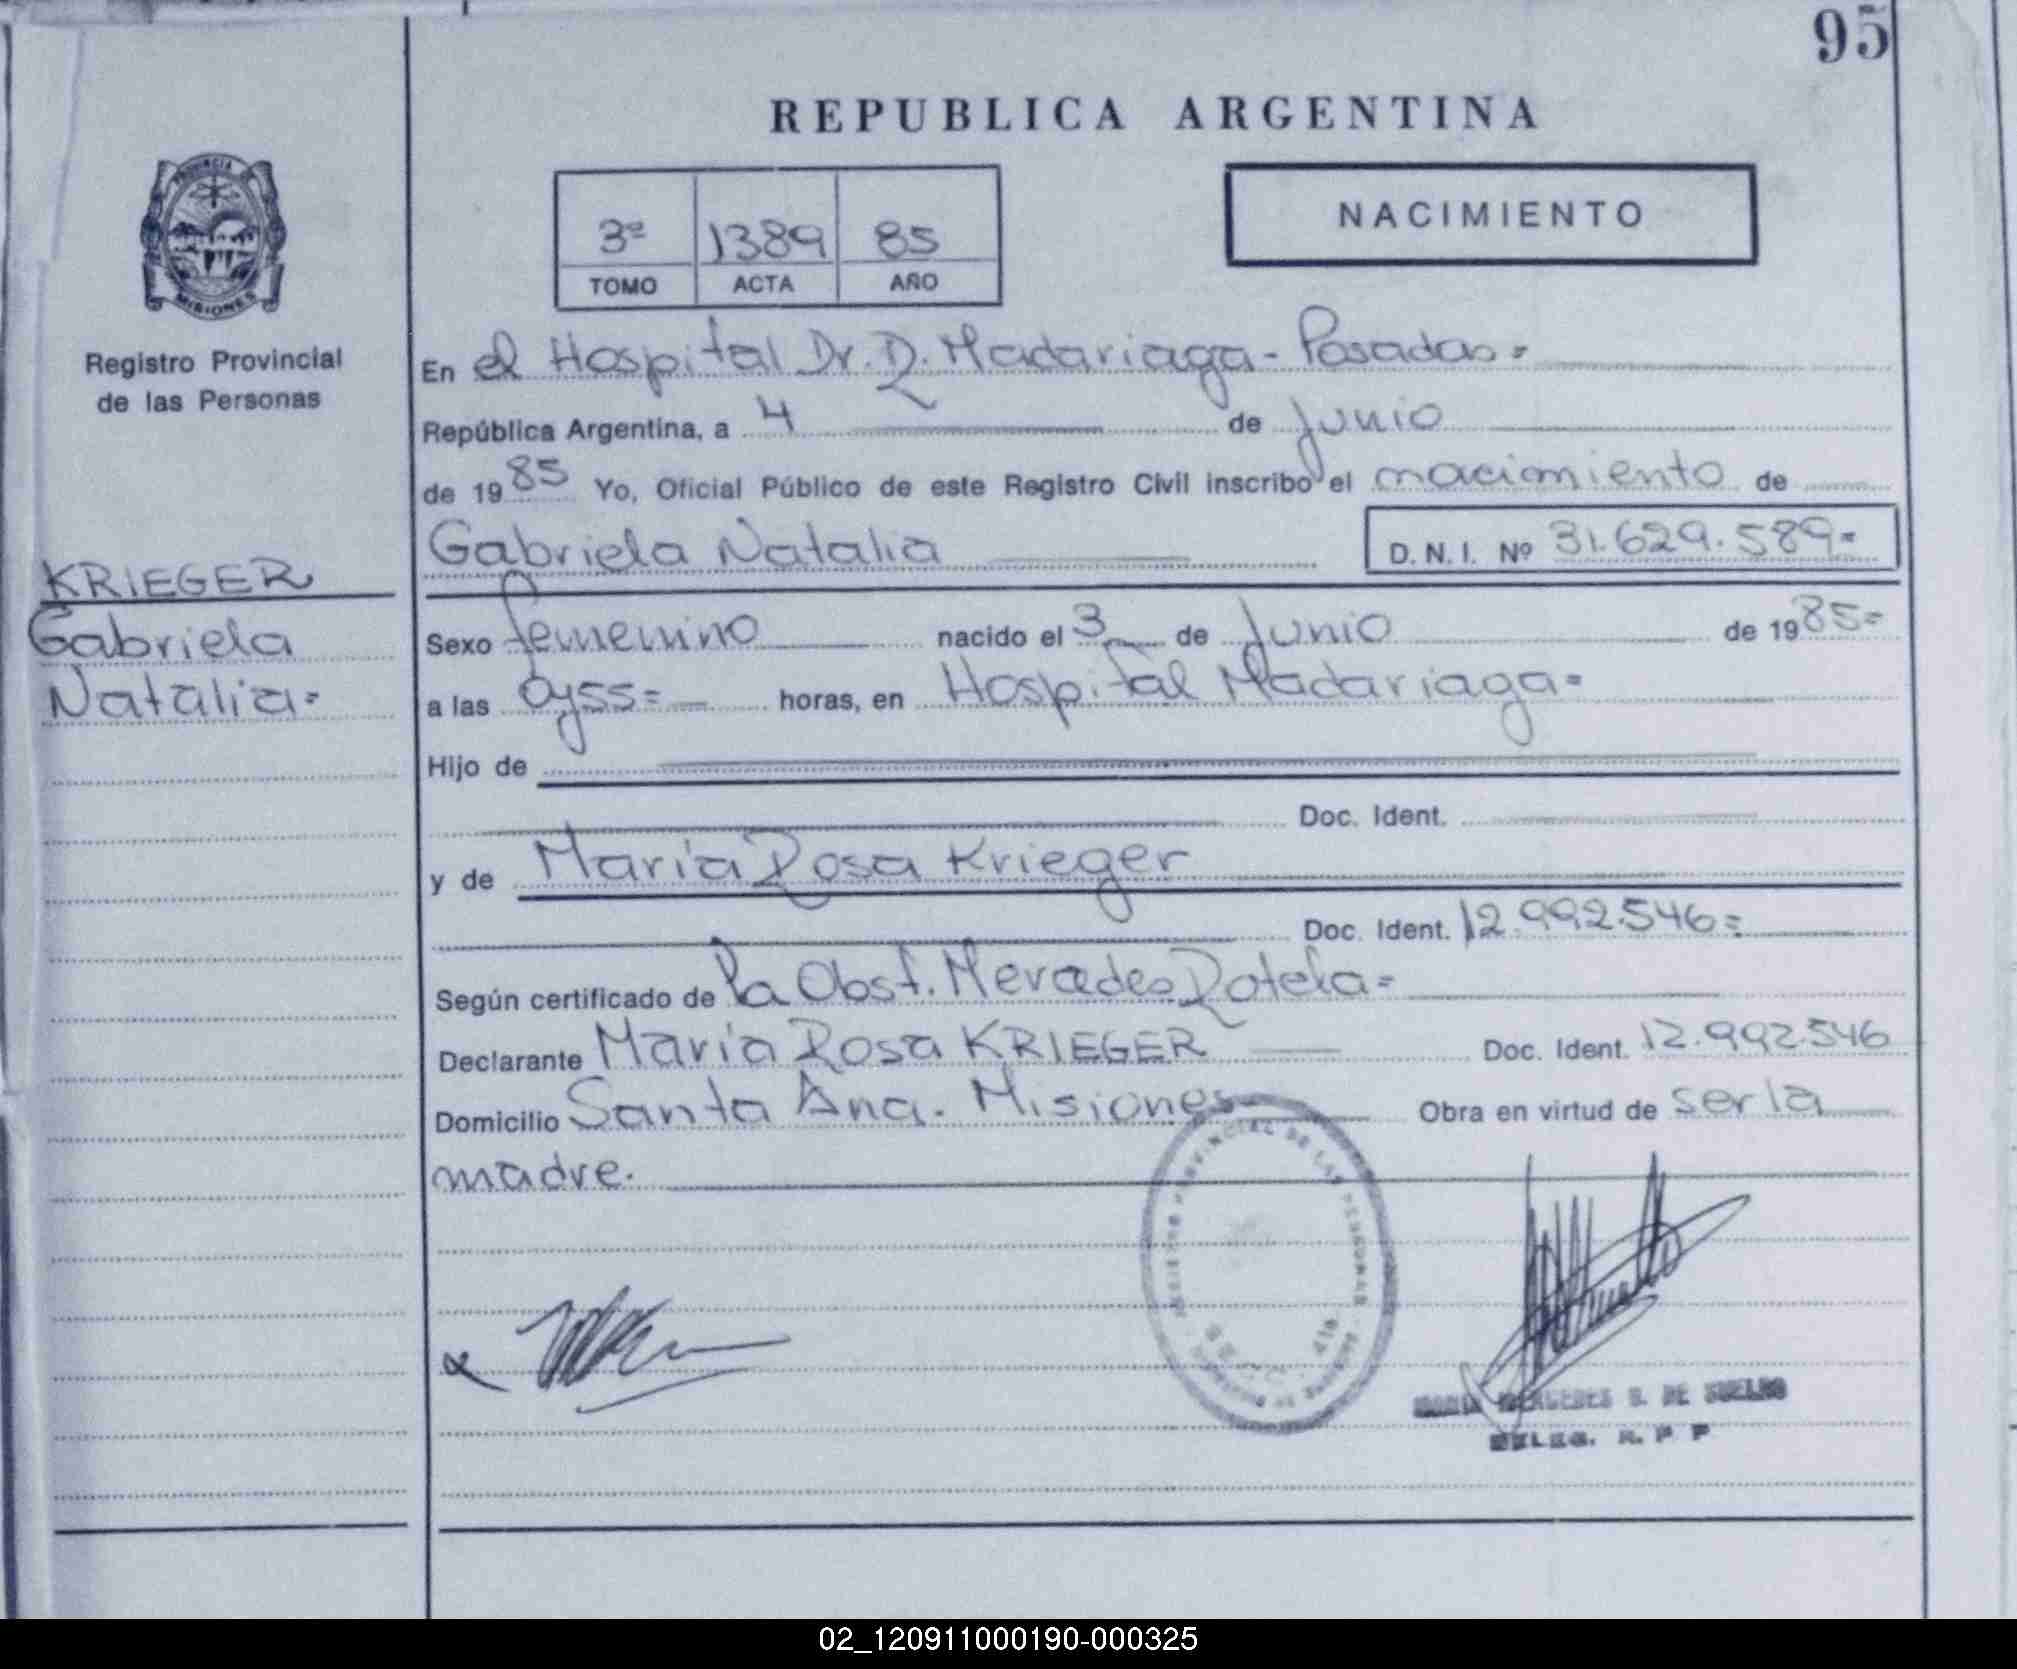 95
REPUBLICA ARGENTINA
PROVINCIA DE
MISIONES
Registro Provincial
de las Personas
3º 1389 85
TOMO ACTA AÑO
NACIMIENTO
En el Hospital Dr. R. Madariaga - Posadas =
República Argentina, a 4 de Junio
de 1985 Yo, Oficial Público de este Registro Civil inscribo el nacimiento de
Gabriela Natalia D. N. I. Nº 31.629.589=
KRIEGER
Gabriela
Natalia=
Sexo femenino nacido el 3 de Junio de 1985=
a las 0y55= horas, en Hospital Madariaga=
Hijo de
Doc. Ident.
y de Maria Rosa Krieger
Doc. Ident. 12.992.546=
Según certificado de la Obst. Mercedes Rotela=
Declarante Maria Rosa KRIEGER Doc. Ident. 12.992.546
Domicilio Santa Ana. Misiones Obra en virtud de ser la
madre.
PROVINCIAL DE LAS PERSONAS
MARIA MERCEDES DE
DELEG. R. P P
02_120911000190-000325